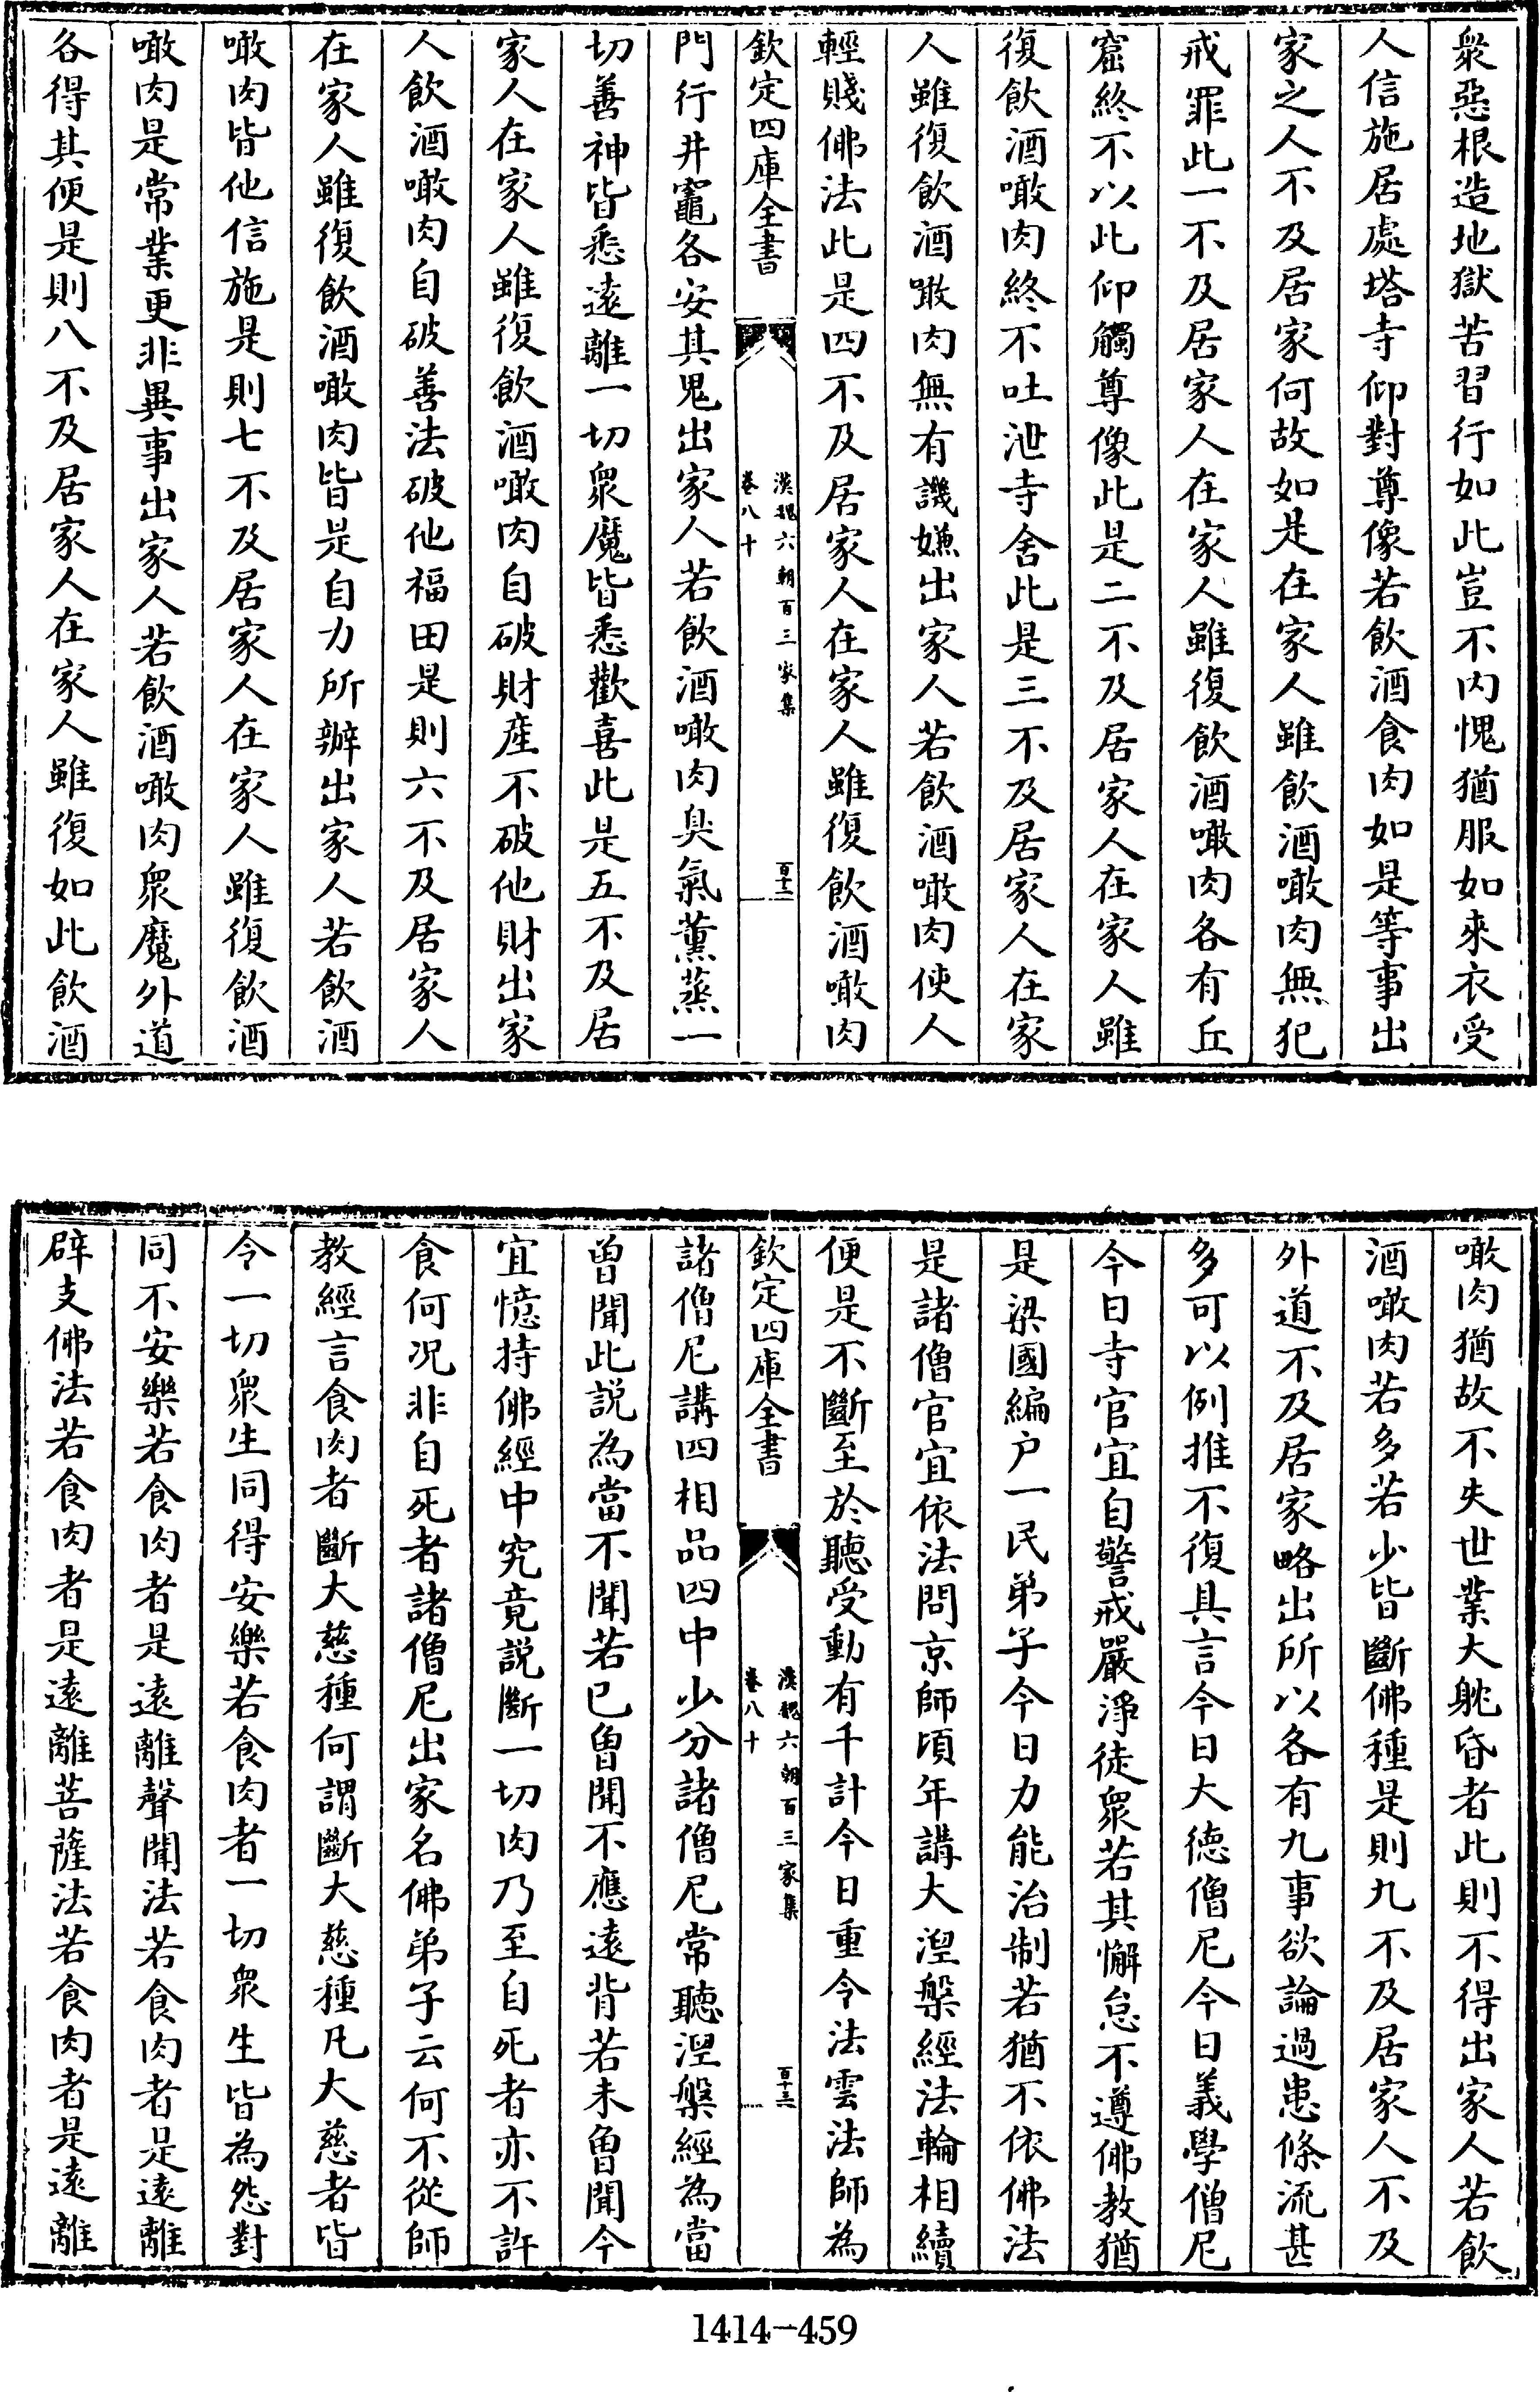 衆惡根造地獄苦習行如此豈不内愧猶服如來衣受
人信施居處塔寺仰對尊像若飲酒食肉如是等事出
家之人不及居家何故如是在家人雖飲酒噉肉無犯
戒罪此一不及居家人在家人雖復飲酒噉肉各有丘
窟終不以此仰觸尊像此是二不及居家人在家人雖
復飲酒噉肉終不吐泄寺舍此是三不及居家人在家
人雖復飲酒噉肉無有譏嫌出家人若飲酒噉肉使人
輕賤佛法此是四不及居家人在家人雖復飲酒噉肉
欽定四庫全書
漢魏六朝百三家集
卷八十
百十二
門行井竈各安其鬼出家人若飲酒噉肉臭氣薰蒸一
切善神皆悉遠離一切衆魔皆悉歡喜此是五不及居
家人在家人雖復飲酒噉肉自破財産不破他財出家
人飲酒噉肉自破善法破他福田是則六不及居家人
在家人雖復飲酒噉肉皆是自力所辦出家人若飲酒
噉肉皆他信施是則七不及居家人在家人雖復飲酒
噉肉是常業更非異事出家人若飲酒噉肉衆魔外道
各得其便是則八不及居家人在家人雖復如此飲酒
噉肉猶故不失世業大躭昏者此則不得出家人若飲
酒噉肉若多若少皆斷佛種是則九不及居家人不及
外道不及居家略出所以各有九事欲論過患條流甚
多可以例推不復具言今日大徳僧尼今日義學僧尼
今日寺官宜自警戒嚴淨徒衆若其懈怠不遵佛教猶
是梁國編户一民弟子今日力能治制若猶不依佛法
是諸僧官宜依法問京師頃年講大湼槃經法輪相續
便是不斷至於聽受動有千計今日重令法雲法師為
欽定四庫全書
漢魏六朝百三家集
卷八十
百十三
諸僧尼講四相品四中少分諸僧尼常聽湼槃經為當
曽聞此説為當不聞若已曽聞不應遠背若未曽聞今
宜憶持佛經中究竟説斷一切肉乃至自死者亦不許
食何况非自死者諸僧尼出家名佛弟子云何不從師
教經言食肉者斷大慈種何謂斷大慈種凡大慈者皆
令一切衆生同得安樂若食肉者一切衆生皆為怨對
同不安樂若食肉者是遠離聲聞法若食肉者是遠離
辟支佛法若食肉者是遠離菩薩法若食肉者是遠離
1414-459